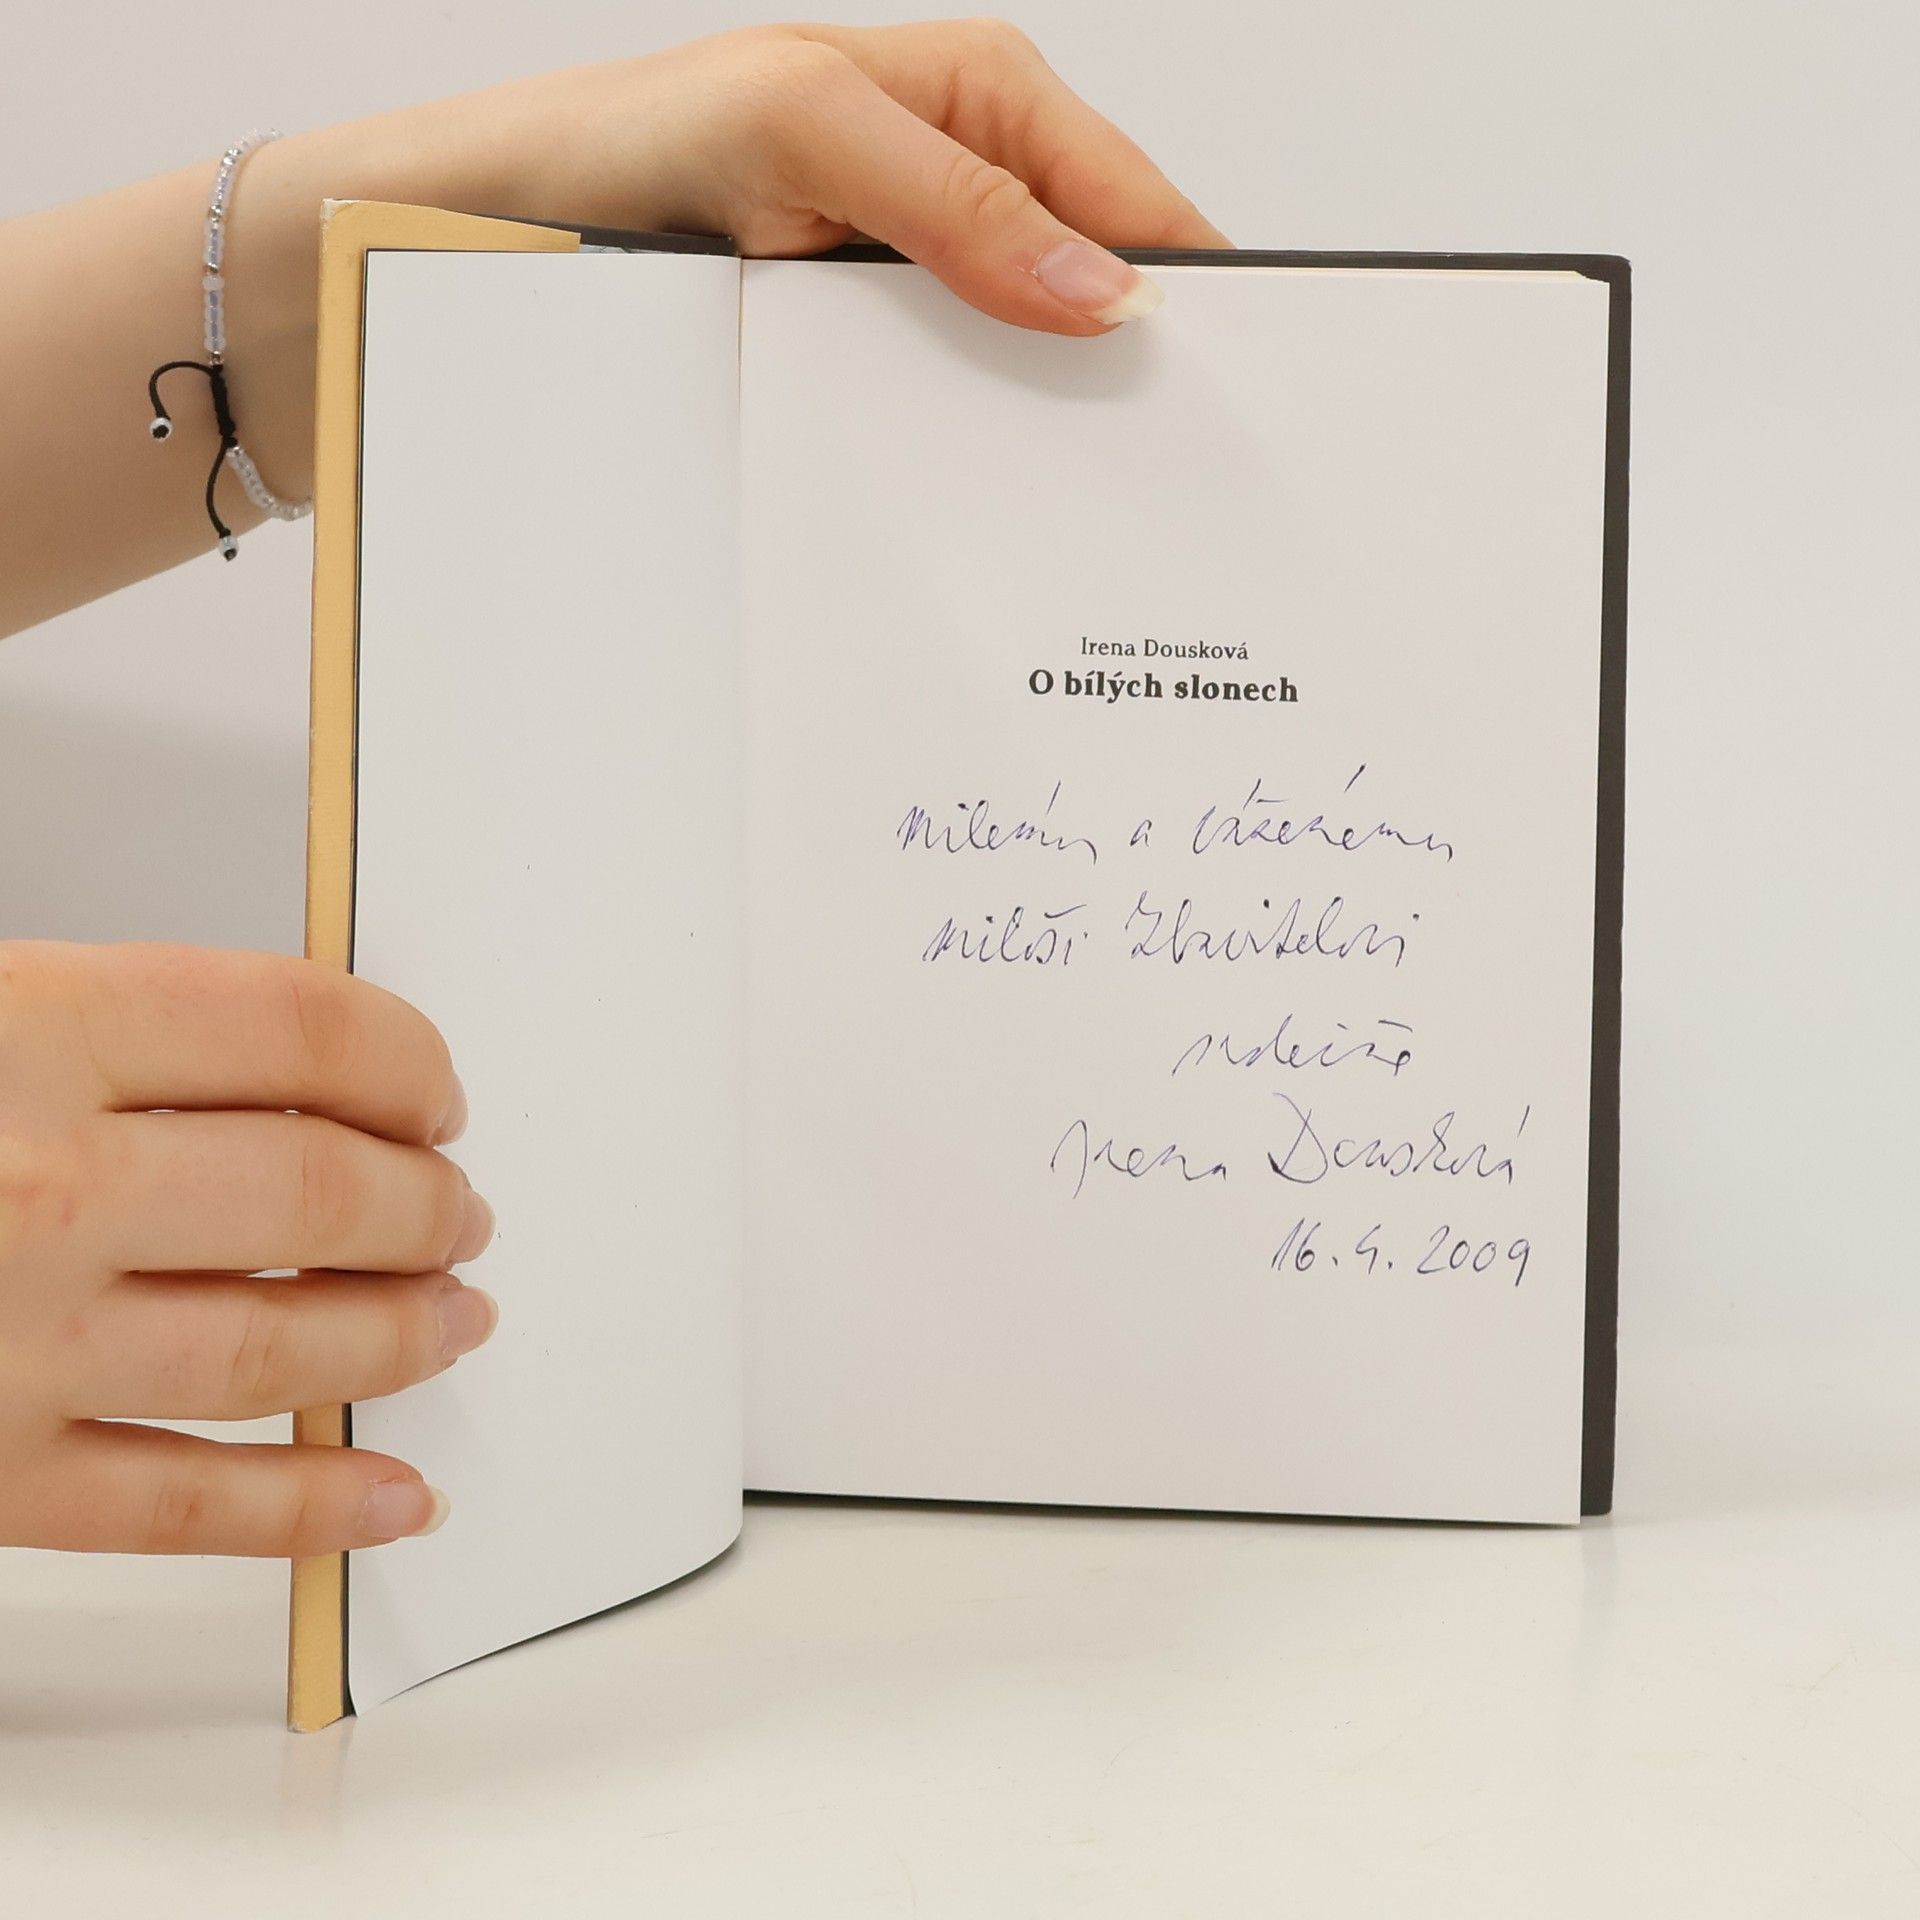 Irena Dousková
O bílých slonech
Milému a váženému
Miloši Zbavitelovi
srdečně
Irena Dousková
16. 4. 2009